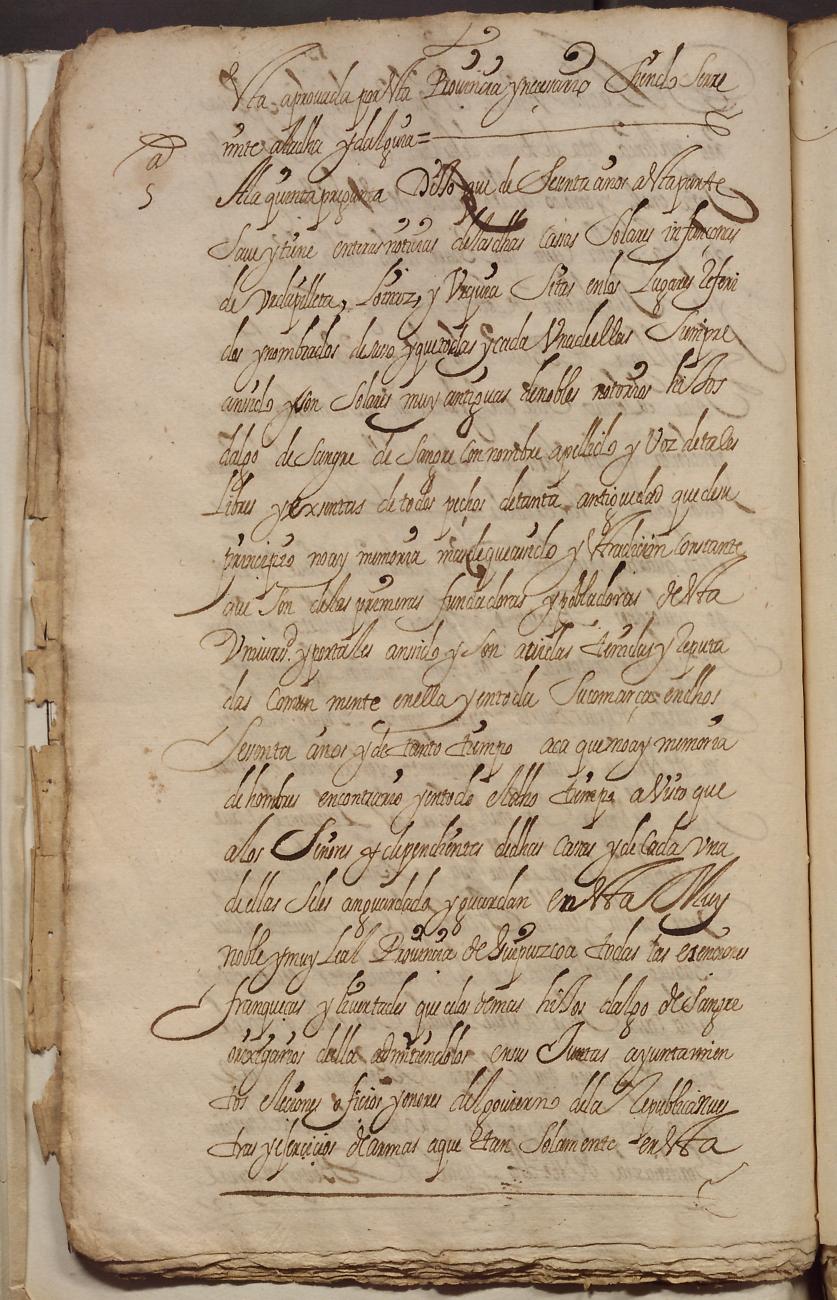 esta aprouada por esta Prouinçia y neçesario siendo serre
unte a la dha ydalguia =
5ª
A la quenta pregunta Dijo que de sesenta años a esta parte
saue y tiene enteras notiçias de las dhas casas solares infançonas
de Vrdapilleta, Lorraz, y Vrquia sitas en los lugares referi
dos y nombrados de suso y que todas y cada vna de ellas siempre
an sido y son solares muy antiguas de nobles notorios hijos
dalgo de sangre de sangre con nombre apellido y voz de tales
libres y exsentas de todos pechos de tanta antiguedad que de su
prinçipio no ay memoria mas de que a auido y es tradiçion constante
que son de las primeras fundadoras y pobladoras de esta
Vniuersd. y por tales an sido y son auidas tenidas y reputa
das comun mente en ella y en toda su comarca en dhos
sesenta años y de tanto tiempo aca que no ay memoria
de hombres en contrario y en todo el dho tiempo a visto que
a los señores y dependientes de dhas casas y de cada vna
de ellas se les an guardado y guardan en esta Muy
noble y muy Leal Prouinçia de Guipuzcoa todas las exençiones
franqueças y liuertades que a los demas hijos dalgo de sangre
origarios della admitiendolos en sus Juntas ayuntamien
tos eleçiones ofiçios y onores del gouierno de la Republica nues
tras y ejerçiçios de armas a que tan solamente en esta